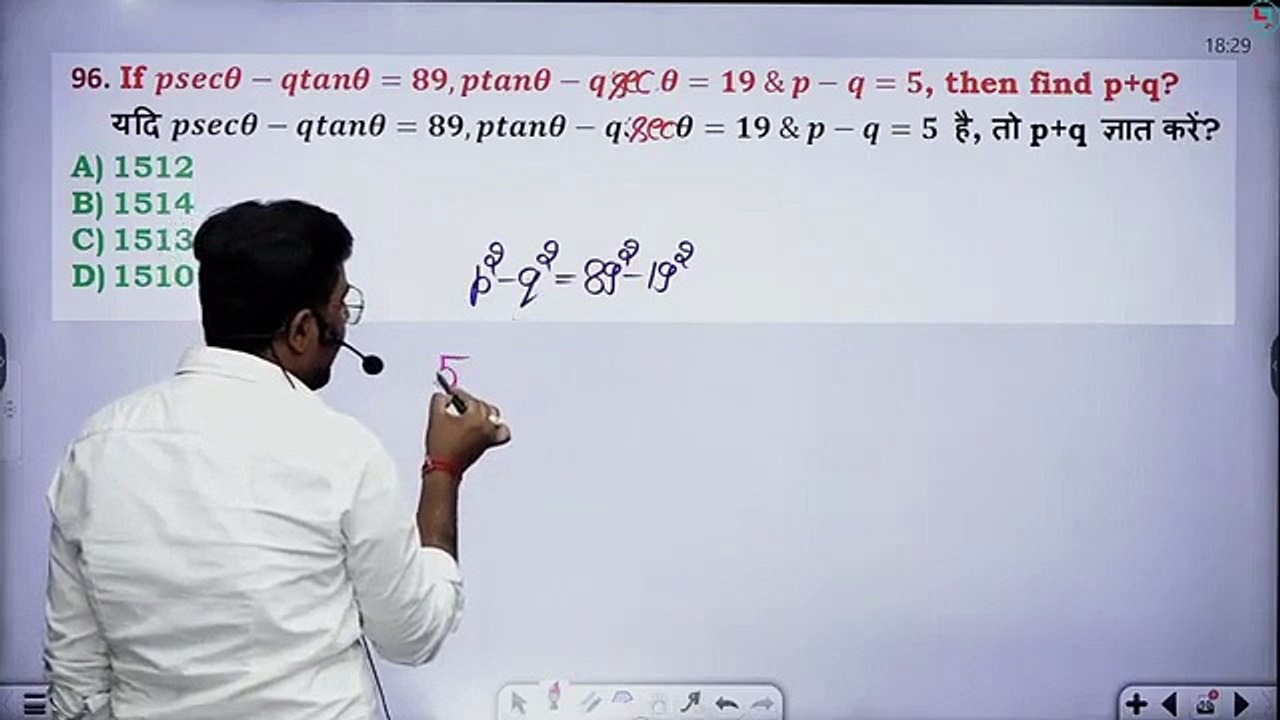 18:29
96. If psecθ − qtanθ = 89, ptanθ − qsec θ = 19 & p − q = 5, then find p+q?
यदि psecθ − qtanθ = 89, ptanθ − q secθ = 19 & p − q = 5 है, तो p+q ज्ञात करें?
A) 1512
B) 1514
C) 1513
D) 1510
p² − q² = 89² − 19²
5